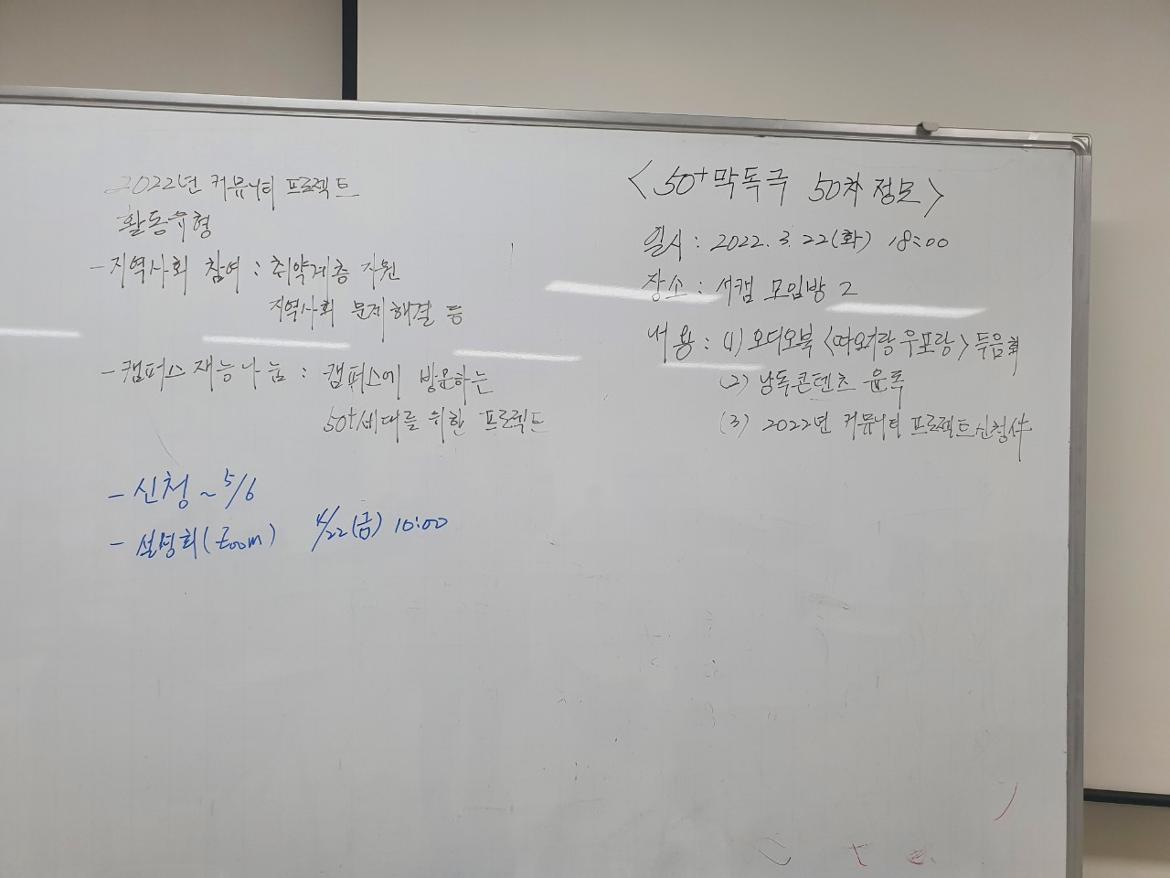 2022년 커뮤니티 프로젝트
활동유형
- 지역사회 참여 : 취약계층 자원
지역사회 문제해결 등
- 캠퍼스 재능나눔 : 캠퍼스에 방문하는
50+세대를 위한 프로젝트
- 신청 ~ 5/6
- 설명회(Zoom) 4/22(금) 10:00
<50+막독극 50차 정모>
일시 : 2022. 3. 22(화) 18:00
장소 : 서캠 모임방 2
내용 : (1) 오디오북 <따오기랑 우포랑> 녹음
(2) 낭독콘텐츠 윤독
(3) 2022년 커뮤니티 프로젝트 신청